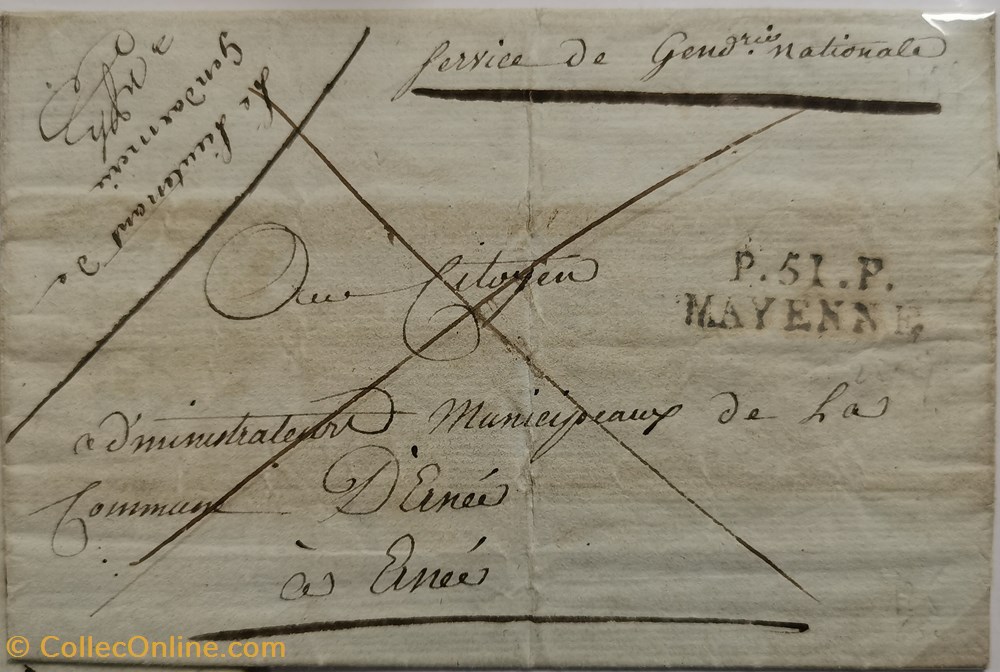 Service de Gend.rie nationale
Le Lieutenant de
Gendarmerie
P.51.P.
MAYENNE
Aux Citoyen
administrateurs Municipeaux de La
Commune D'Ernée
à Ernée
© CollecOnline.com